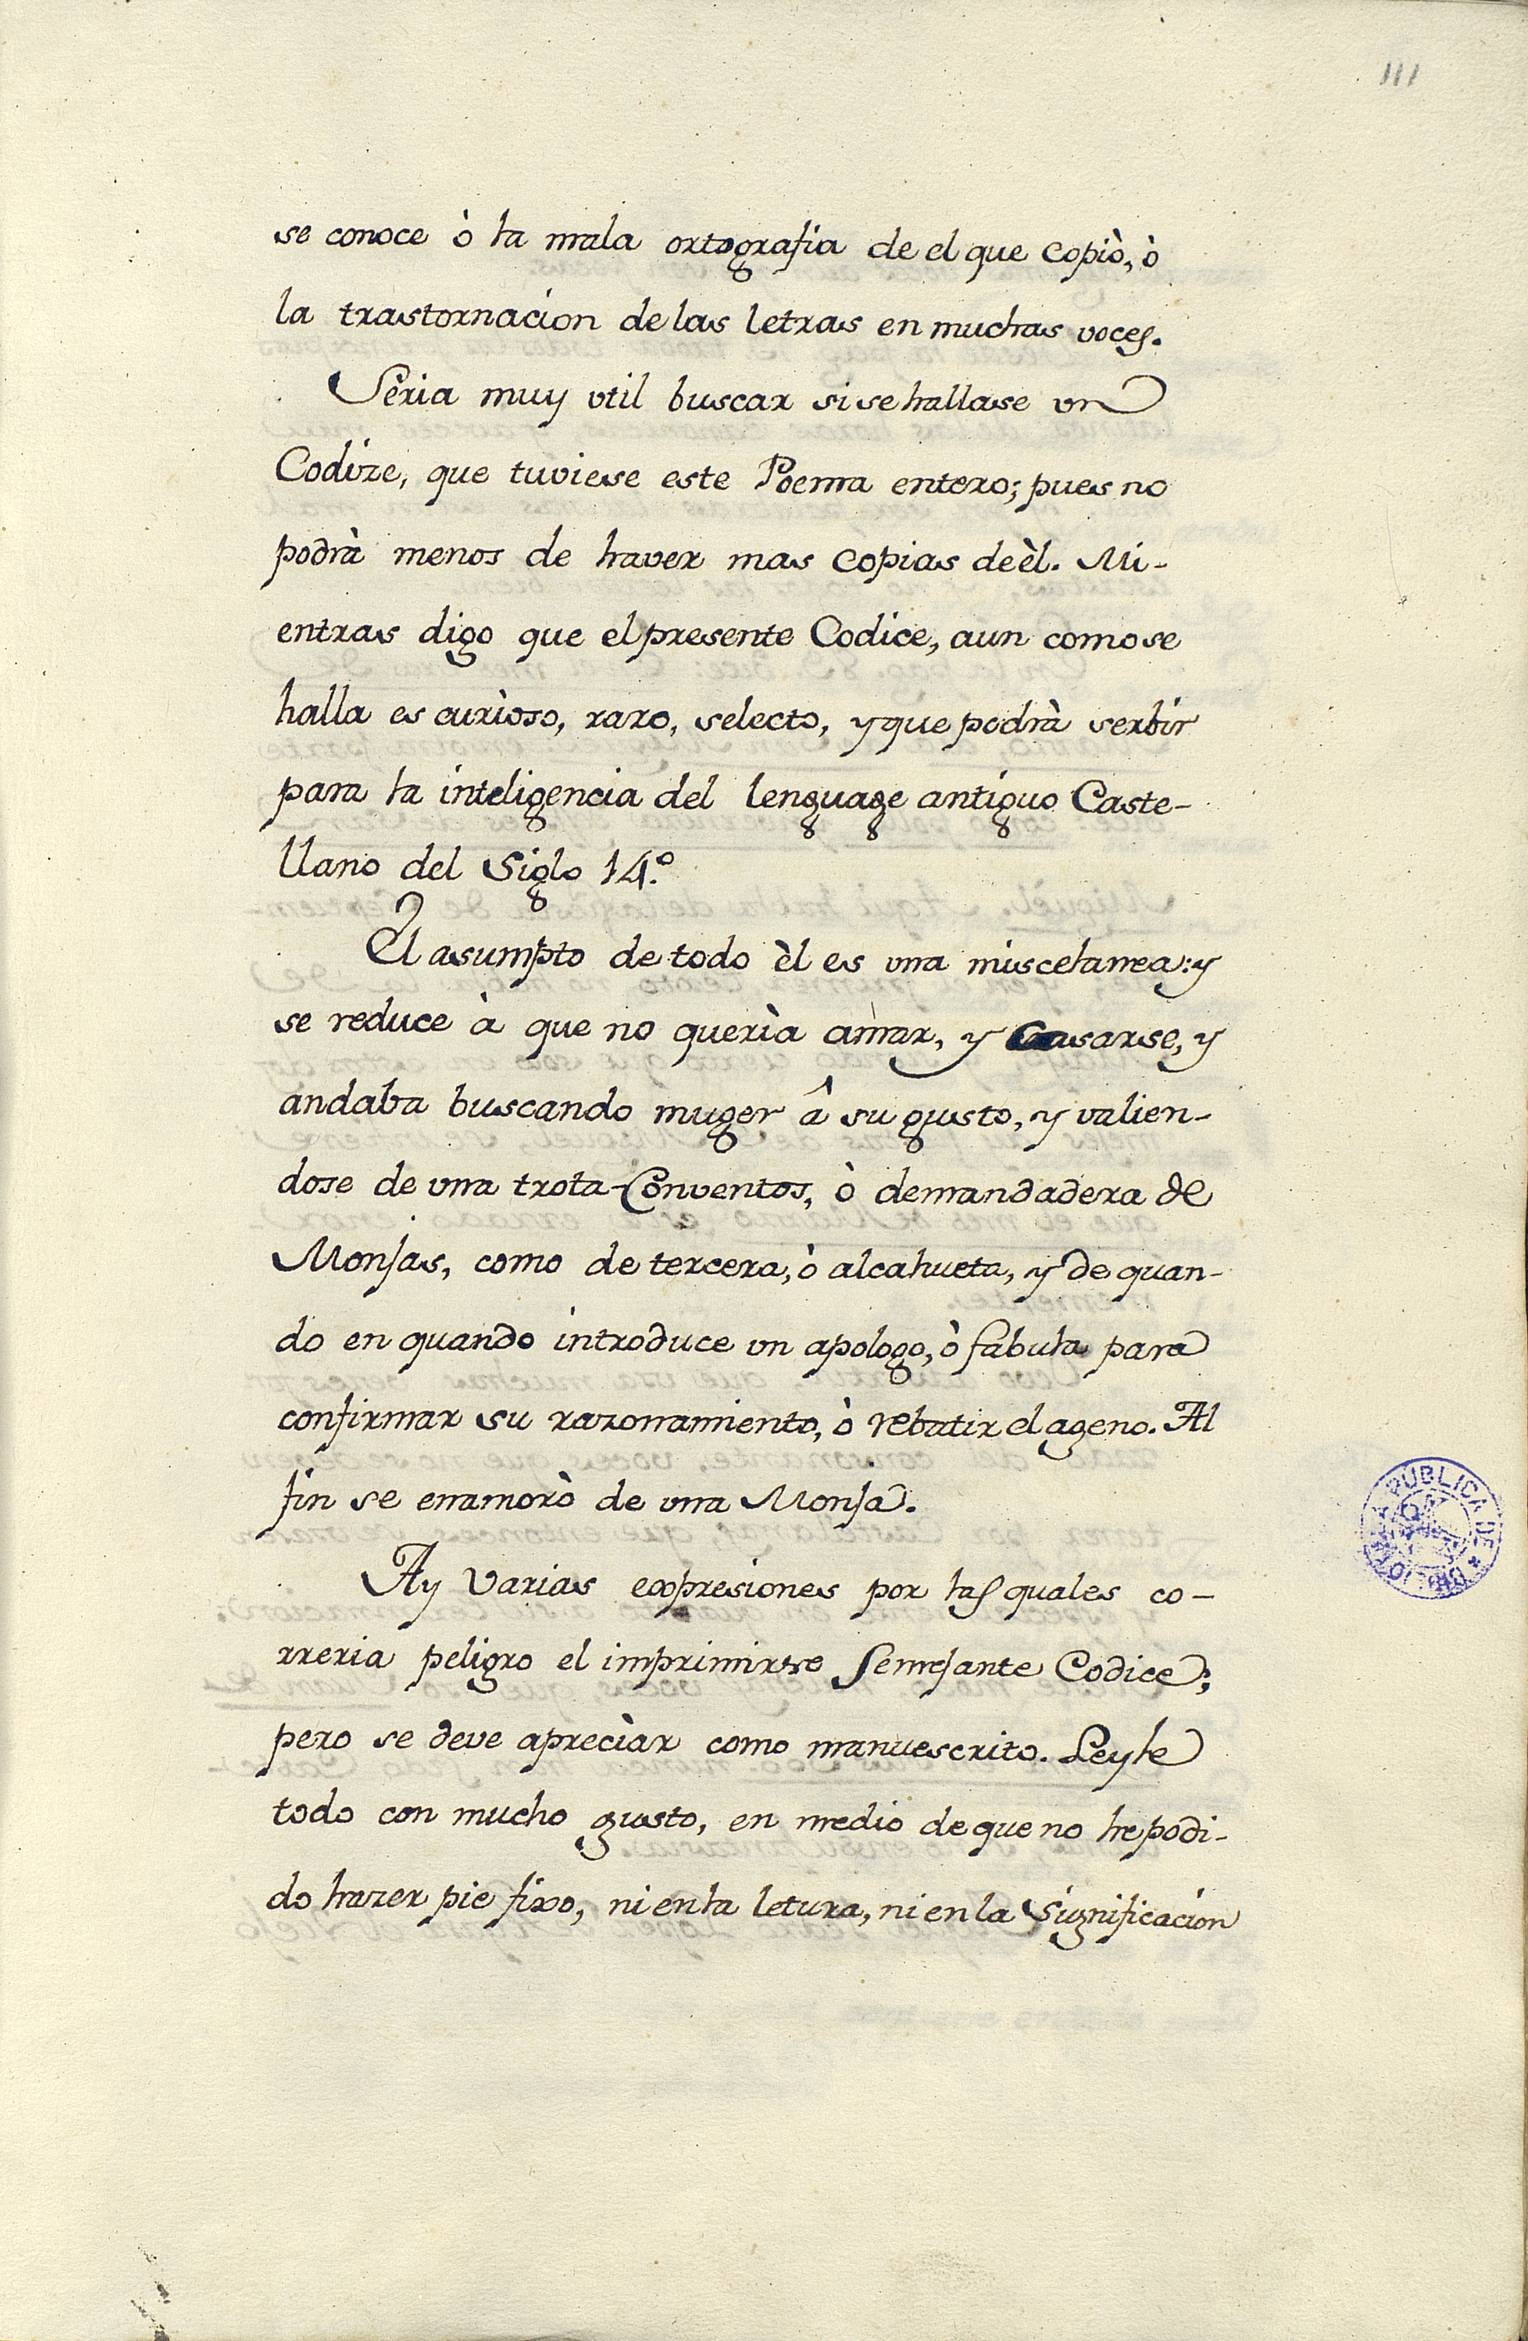 111
se conoce ò la mala ortografia de el que copiò, ò
la trastornacion de las letras en muchas voces.
Seria muy vtil buscar si se hallase vn
Codize, que tuviese este Poema entero; pues no
podrà menos de haver mas copias de èl. Mi-
entras digo que el presente Codice, aun como se
halla es curioso, raro, selecto, y que podrà serbir
para la inteligencia del lenguage antiguo Caste-
llano del Siglo 14.º
El asumpto de todo èl es vna miscelanea: y
se reduce à que no querìa amar, y casarse, y
andaba buscando muger â su gusto, y valien-
dose de vna trota-Conventos, ò demandadera de
Monjas, como de tercera, ò alcahueta, y de quan-
do en quando introduce vn apologo, ò fabula para
confirmar su razonamiento, ò rebatir el ageno. Al
fin se enamorò de vna Monja.
Ay varias expresiones por las quales co-
rreria peligro el imprimirse semejante Codice;
pero se deve apreciar como manuescrito. Leyle
todo con mucho gusto, en medio de que no he podi-
do hazer pie fixo, ni en la letura, ni en la significacion
PUBLICA DE